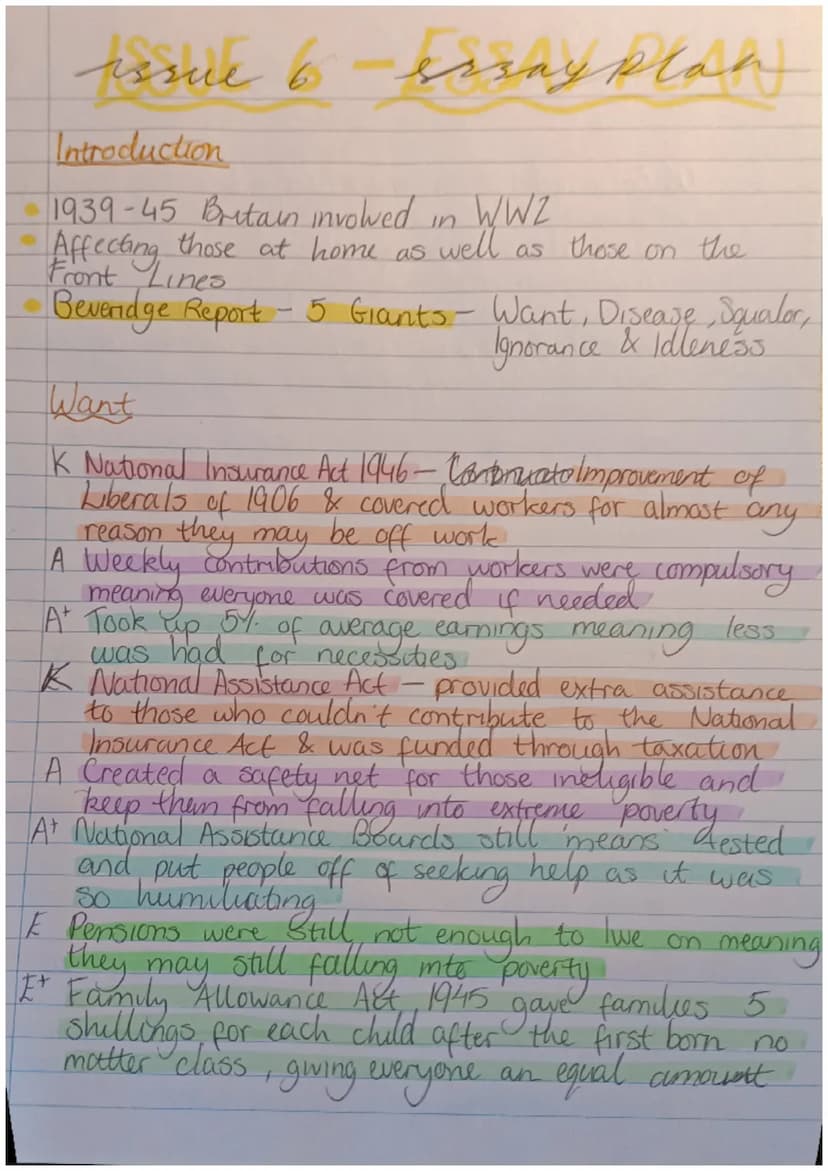 ISSUE 6 - ESSAY PLAN
issue 6 - essay plan
Introduction
• 1939-45 Britain involved in WW2
• Affecting those at home as well as those on the
Front Lines
• Beveridge Report - 5 Giants - Want, Disease, Squalor,
Ignorance & Idleness
Want
K National Insurance Act 1946 - Improvement of
Liberals of 1906 & covered workers for almost any
reason they may be off work
A Weekly contributions from workers were compulsory
meaning everyone was covered if needed
A+ Took up 5% of average earnings meaning less
was had for necessities
K National Assistance Act - provided extra assistance
to those who couldn't contribute to the National
Insurance Act & was funded through taxation
A Created a safety net for those ineligible and
keep them from falling into extreme poverty
A+ National Assistance Boards still 'means' tested
and put people off of seeking help as it was
so humiliating
E Pensions were still not enough to live on meaning
they may still falling into poverty
E+ Family Allowance Act 1945 gave families 5
shillings for each child after the first born no
matter class, giving everyone an equal amount